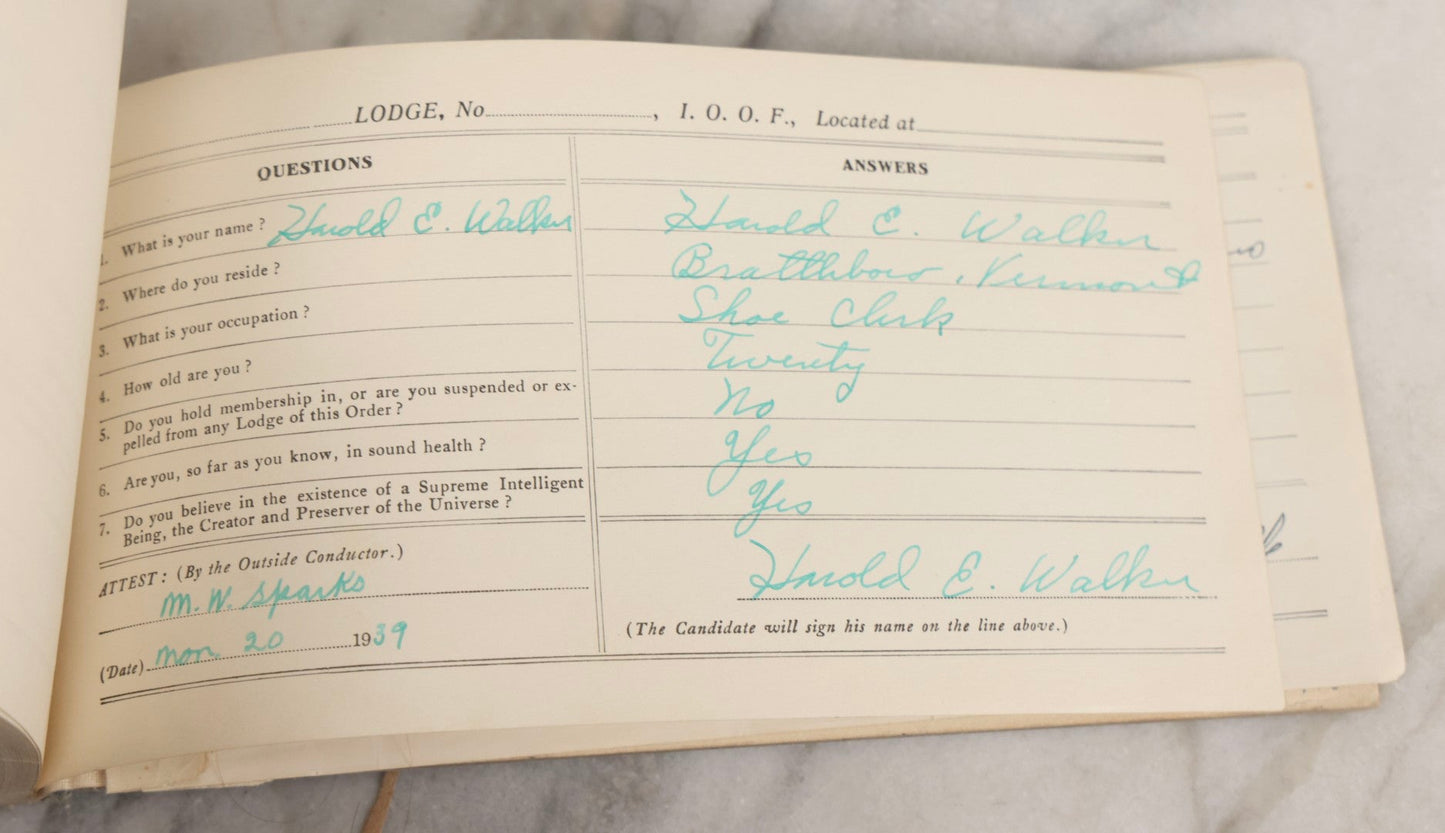 LODGE, No. , I. O. O. F., Located at
QUESTIONS
ANSWERS
1. What is your name ? Harold E. Walker
Harold E. Walker
2. Where do you reside ?
Brattleboro, Vermont
3. What is your occupation ?
Shoe Clerk
4. How old are you ?
Twenty
5. Do you hold membership in, or are you suspended or ex-
pelled from any Lodge of this Order ?
No
6. Are you, so far as you know, in sound health ?
Yes
7. Do you believe in the existence of a Supreme Intelligent
Being, the Creator and Preserver of the Universe ?
Yes
ATTEST : (By the Outside Conductor.)
M. W. Sparks
Harold E. Walker
(Date) 20 1939
(The Candidate will sign his name on the line above.)